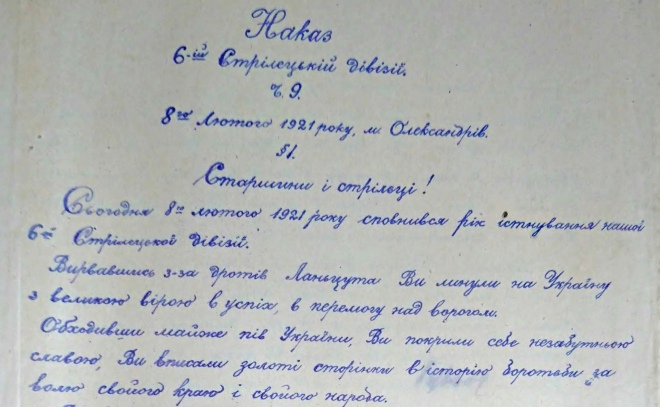 Наказ
6-ій Стрілецькій дівізії.
Ч. 9.
8го Лютого 1921 року, м. Олександрів.
§1.
Старшини і стрілеці!
Сьогодня 8го лютого 1921 року сповнився рік істнування нашої
6-ої Стрілецької дівізії.
Вирвавшись з-за дротів Ланьцута Ви линули на Україну
з великою вірою в успіх, в перемогу над ворогом.
Обходивши майже пів України, Ви покрили себе незабутньою
славою, Ви вписали золоті сторінки в історію боротьби за
волю свойого краю і свойого народа.